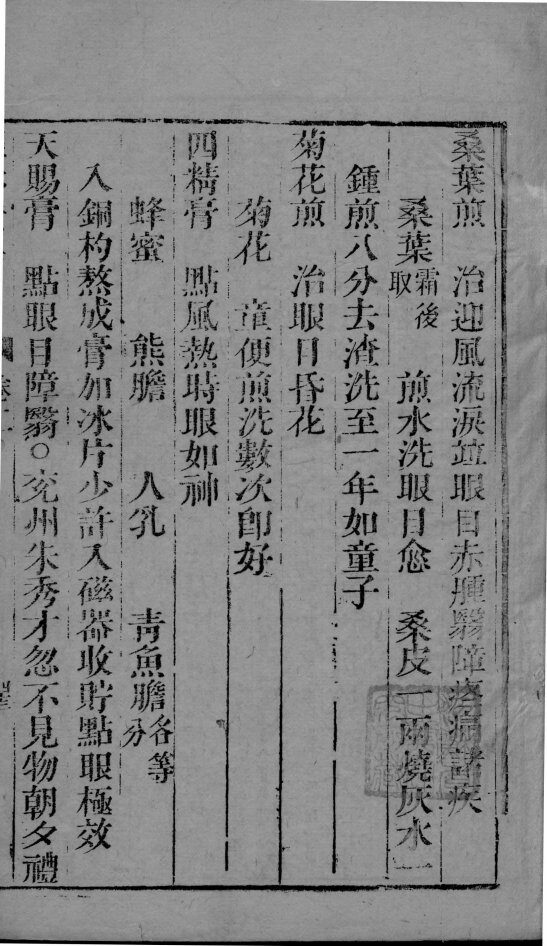 桑葉煎　治迎風流淚竝眼目赤腫翳障疼痛諸疾
桑葉霜後取　煎水洗眼目愈　桑皮一兩燒灰水一
鍾煎八分去渣洗至一年如童子
菊花煎　治眼目昏花
菊花　童便煎洗數次卽好
四精膏　點風熱時眼如神
蜂蜜　熊膽　人乳　青魚膽各等分
入銅杓熬成膏加冰片少許入磁器收貯點眼極效
天賜膏　點眼目障翳○兖州朱秀才忽不見物朝夕禮